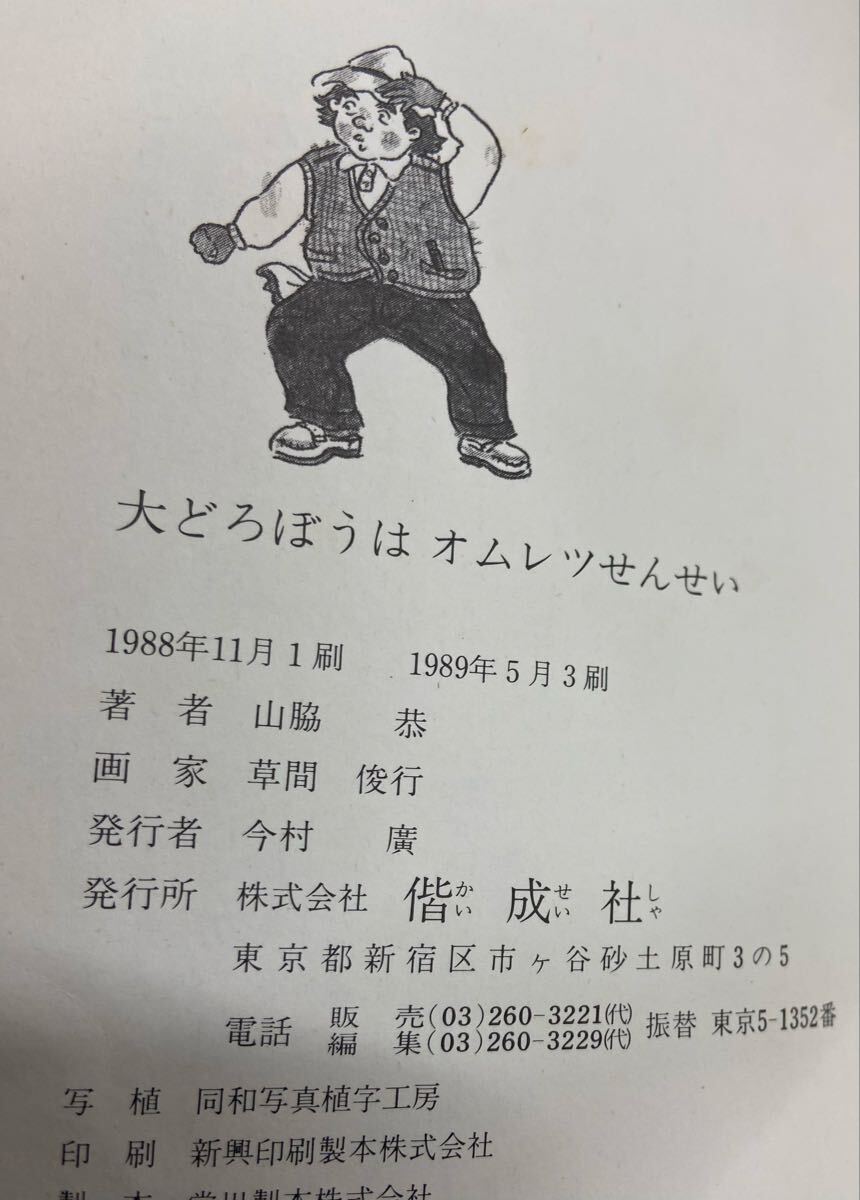 大どろぼうは オムレツせんせい
1988年11月1刷 1989年5月3刷
著者 山脇 恭
画家 草間 俊行
発行者 今村 廣
発行所 株式会社 偕成社 かい せい しゃ
東京都新宿区市ヶ谷砂土原町3の5
電話 販売(03)260-3221(代) 振替 東京5-1352番
編集(03)260-3229(代)
写植 同和写真植字工房
印刷 新興印刷製本株式会社
製本 常川製本株式会社